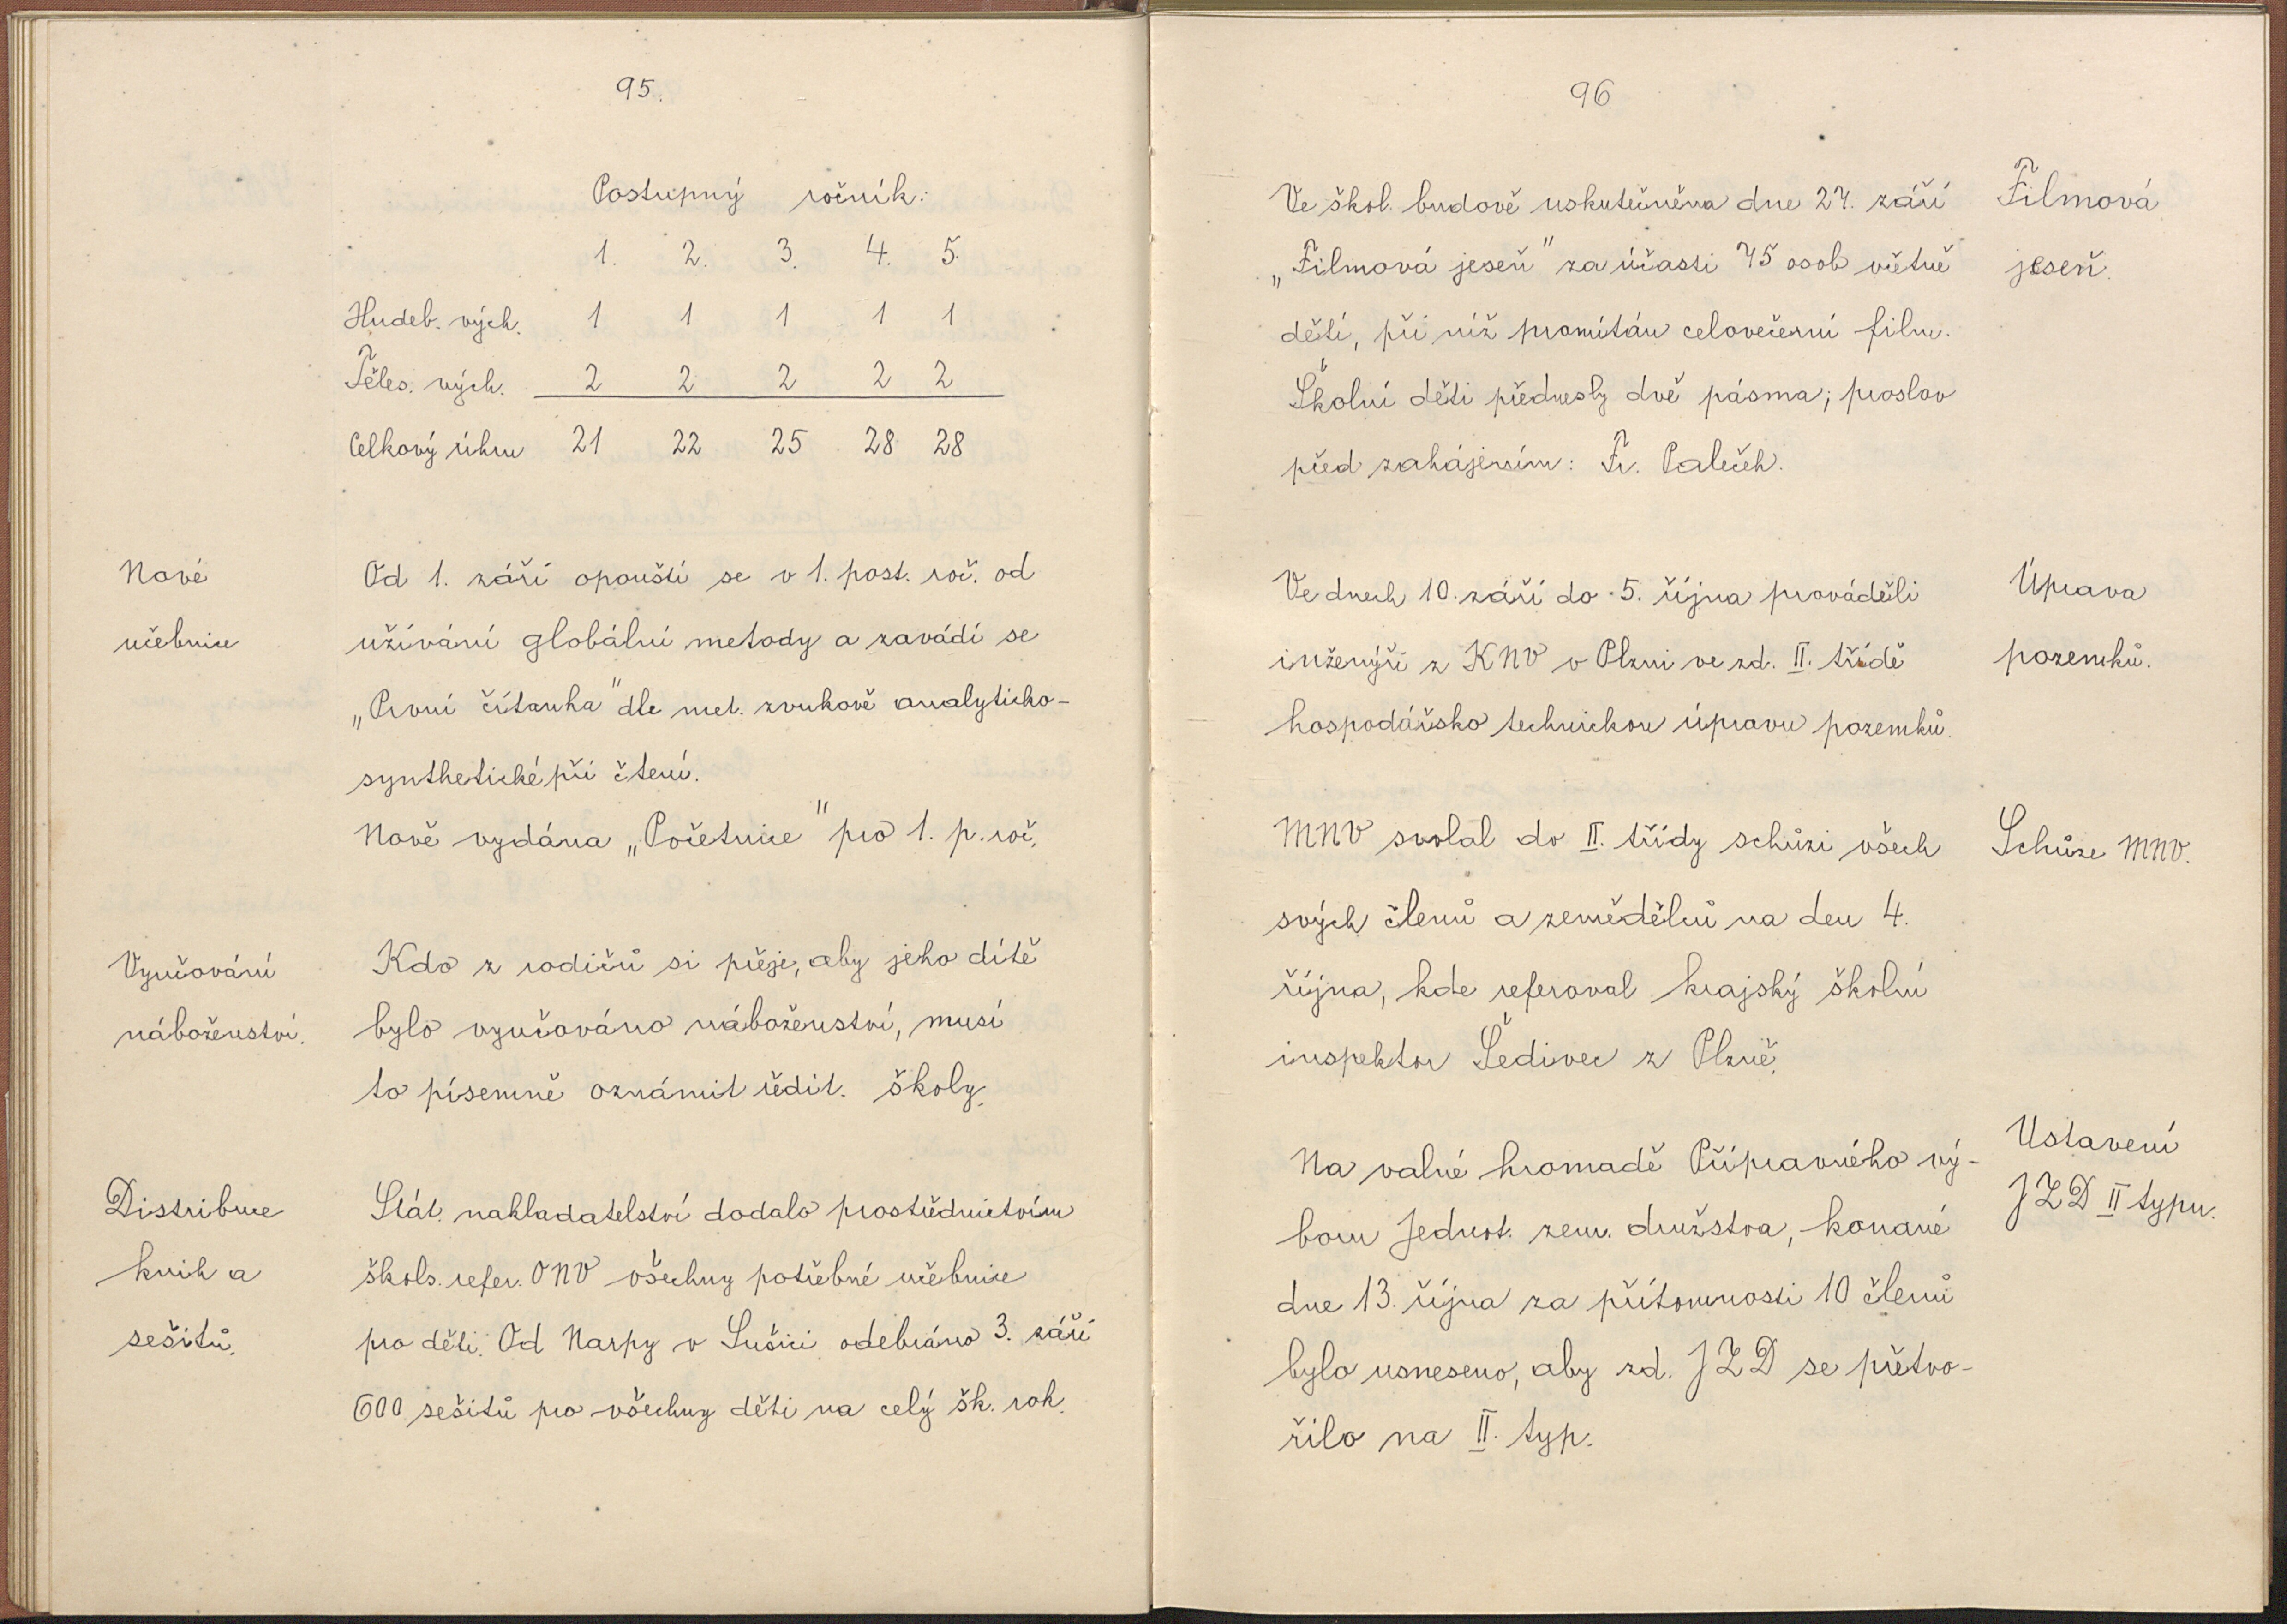 95.
Postupný ročník:
1. 2. 3. 4. 5.
Hudeb. vých. 1 1 1 1 1
Těles. vých. 2 2 2 2 2
Celkový úhrn 21 22 25 28 28
Nové
učebnice
Od 1. září opouští se v 1. post. roč. od
užívání globální metody a zavádí se
„První čítanka" dle met. zvukově analyticko-
synthetické při čtení.
Nově vydána „Početnice" pro 1. p. roč.
Vyučování
náboženství.
Kdo z rodičů si přeje, aby jeho dítě
bylo vyučováno náboženství, musí
to písemně oznámit řédit. školy.
Distribuce
knih a
sešitů.
Stát. nakladatelství dodalo prostřednictvím
škols. refer. ONV všechny potřebné učebnice
pro děti. Od Narpy v Sušici odebráno 3. září
600 sešitů pro všechny děti na celý šk. rok.
96
Ve škol. budově uskutečněna dne 27. září
„Filmová jeseň" za účasti 75 osob včetně
dětí, při níž promítán celovečerní film.
Školní děti přednesly dvě pásma; proslov
před zahájením: Fr. Paleček.
Filmová
jeseň.
Ve dnech 10. září do 5. října prováděli
inženýři z KNV v Plzni ve zd. II. třídě
hospodářsko technickou úpravu pozemků.
Úprava
pozemků.
MNV svolal do II. třídy schůzi všech
svých členů a zemědělců na den 4.
října, kde referoval krajský školní
inspektor Šedivec z Plzně.
Schůze MNV.
Na valné hromadě Přípravného vý-
boru Jednot. zem. družstva, konané
dne 13. října za přítomnosti 10 členů
bylo usneseno, aby zd. JZD se přetvo-
řilo na II. typ.
Ustavení
JZD II typu.